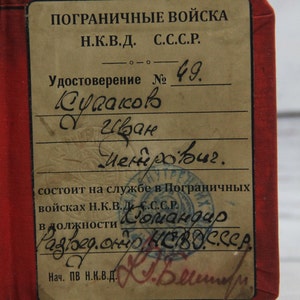 ПОГРАНИЧНЫЕ ВОЙСКА
Н.К.В.Д. С.С.С.Р.
Удостоверение № 49.
Кулаков
Иван
Петрович.
состоит на службе в Пограничных
войсках Н.К.В.Д. С.С.С.Р.
в должности Командир
Нач. ПВ Н.К.В.Д.